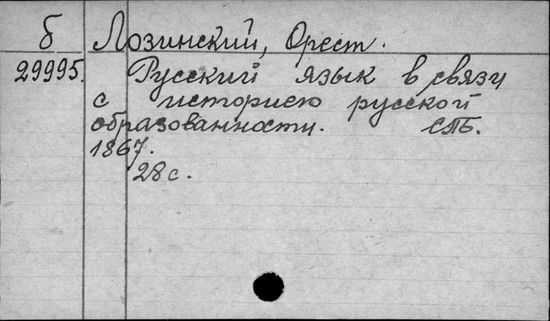 б Лозинский, Орест.
29995. Русский язык в связи
с историею русской
образованности. СПБ.
1867.
28 с.